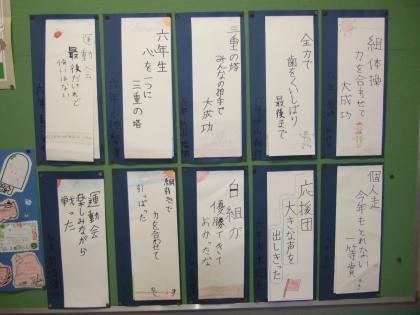 組体操
力を合わせて
大成功
全力で
歯をくいしばり
最後まで
三重の塔
みんなの拍手で
大成功
六年生
心を一つに
三重の塔
運動会
最後だけれど
悔いはない
個人走
今年もとれない
一等賞
応援団
大きな声を
出しきった
白組が
優勝できて
よかったな
綱引きで
力を合わせて
引っぱった
運動会
楽しみながら
戦った